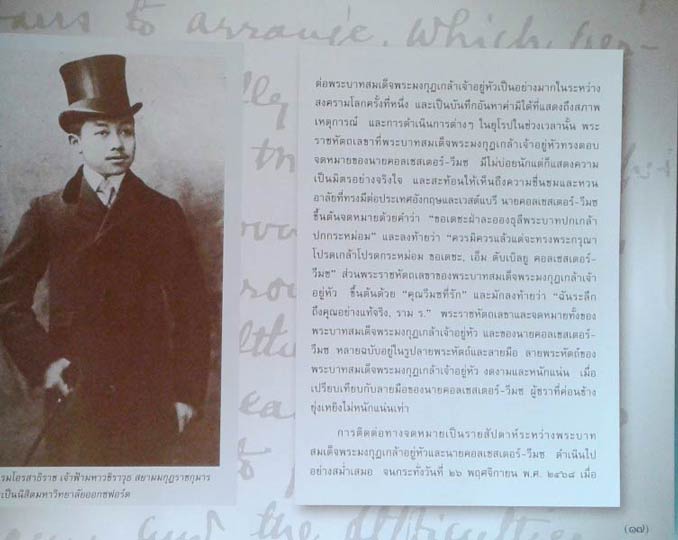 ans to arrange, which, per-
ต่อพระบาทสมเด็จพระมงกุฎเกล้าเจ้าอยู่หัวเป็นอย่างมากในระหว่าง
สงครามโลกครั้งที่หนึ่ง และเป็นบันทึกอันหาค่ามิได้ที่แสดงถึงสภาพ
เหตุการณ์ และการดำเนินการต่างๆ ในยุโรปในช่วงเวลานั้น พระ
ราชหัตถเลขาที่พระบาทสมเด็จพระมงกุฎเกล้าเจ้าอยู่หัวทรงตอบ
จดหมายของนายคอลเชสเตอร์-วีมซ มีไม่บ่อยนักแต่ก็แสดงความ
เป็นมิตรอย่างจริงใจ และสะท้อนให้เห็นถึงความชื่นชมและหวน
อาลัยที่ทรงมีต่อประเทศอังกฤษและเวสต์แบรี นายคอลเชสเตอร์-วีมซ
ขึ้นต้นจดหมายด้วยคำว่า "ขอเดชะฝ่าละอองธุลีพระบาทปกเกล้า
ปกกระหม่อม" และลงท้ายว่า "ควรมิควรแล้วแต่จะทรงพระกรุณา
โปรดเกล้าโปรดกระหม่อม ขอเดชะ, เอ็ม ดับเบิลยู คอลเชสเตอร์-
วีมซ" ส่วนพระราชหัตถเลขาของพระบาทสมเด็จพระมงกุฎเกล้าเจ้า
อยู่หัว ขึ้นต้นด้วย "คุณวีมซที่รัก" และมักลงท้ายว่า "ฉันระลึก
ถึงคุณอย่างแท้จริง, ราม ร." พระราชหัตถเลขาและจดหมายทั้งของ
พระบาทสมเด็จพระมงกุฎเกล้าเจ้าอยู่หัว และของนายคอลเชสเตอร์-
วีมซ หลายฉบับอยู่ในรูปลายพระหัตถ์และลายมือ ลายพระหัตถ์ของ
พระบาทสมเด็จพระมงกุฎเกล้าเจ้าอยู่หัว งดงามและหนักแน่น เมื่อ
เปรียบเทียบกับลายมือของนายคอลเชสเตอร์-วีมซ ผู้ชราที่ค่อนข้าง
ยุ่งเหยิงไม่หนักแน่นเท่า
การติดต่อทางจดหมายเป็นรายสัปดาห์ระหว่างพระบาท
สมเด็จพระมงกุฎเกล้าเจ้าอยู่หัวและนายคอลเชสเตอร์-วีมซ ดำเนินไป
อย่างสม่ำเสมอ จนกระทั่งวันที่ ๒๖ พฤศจิกายน พ.ศ. ๒๔๖๘ เมื่อ
รมโอรสาธิราช เจ้าฟ้ามหาวชิราวุธ สยามมกุฎราชกุมาร
ะเป็นนิสิตมหาวิทยาลัยออกซฟอร์ด
and the difficulties
(๑๗)